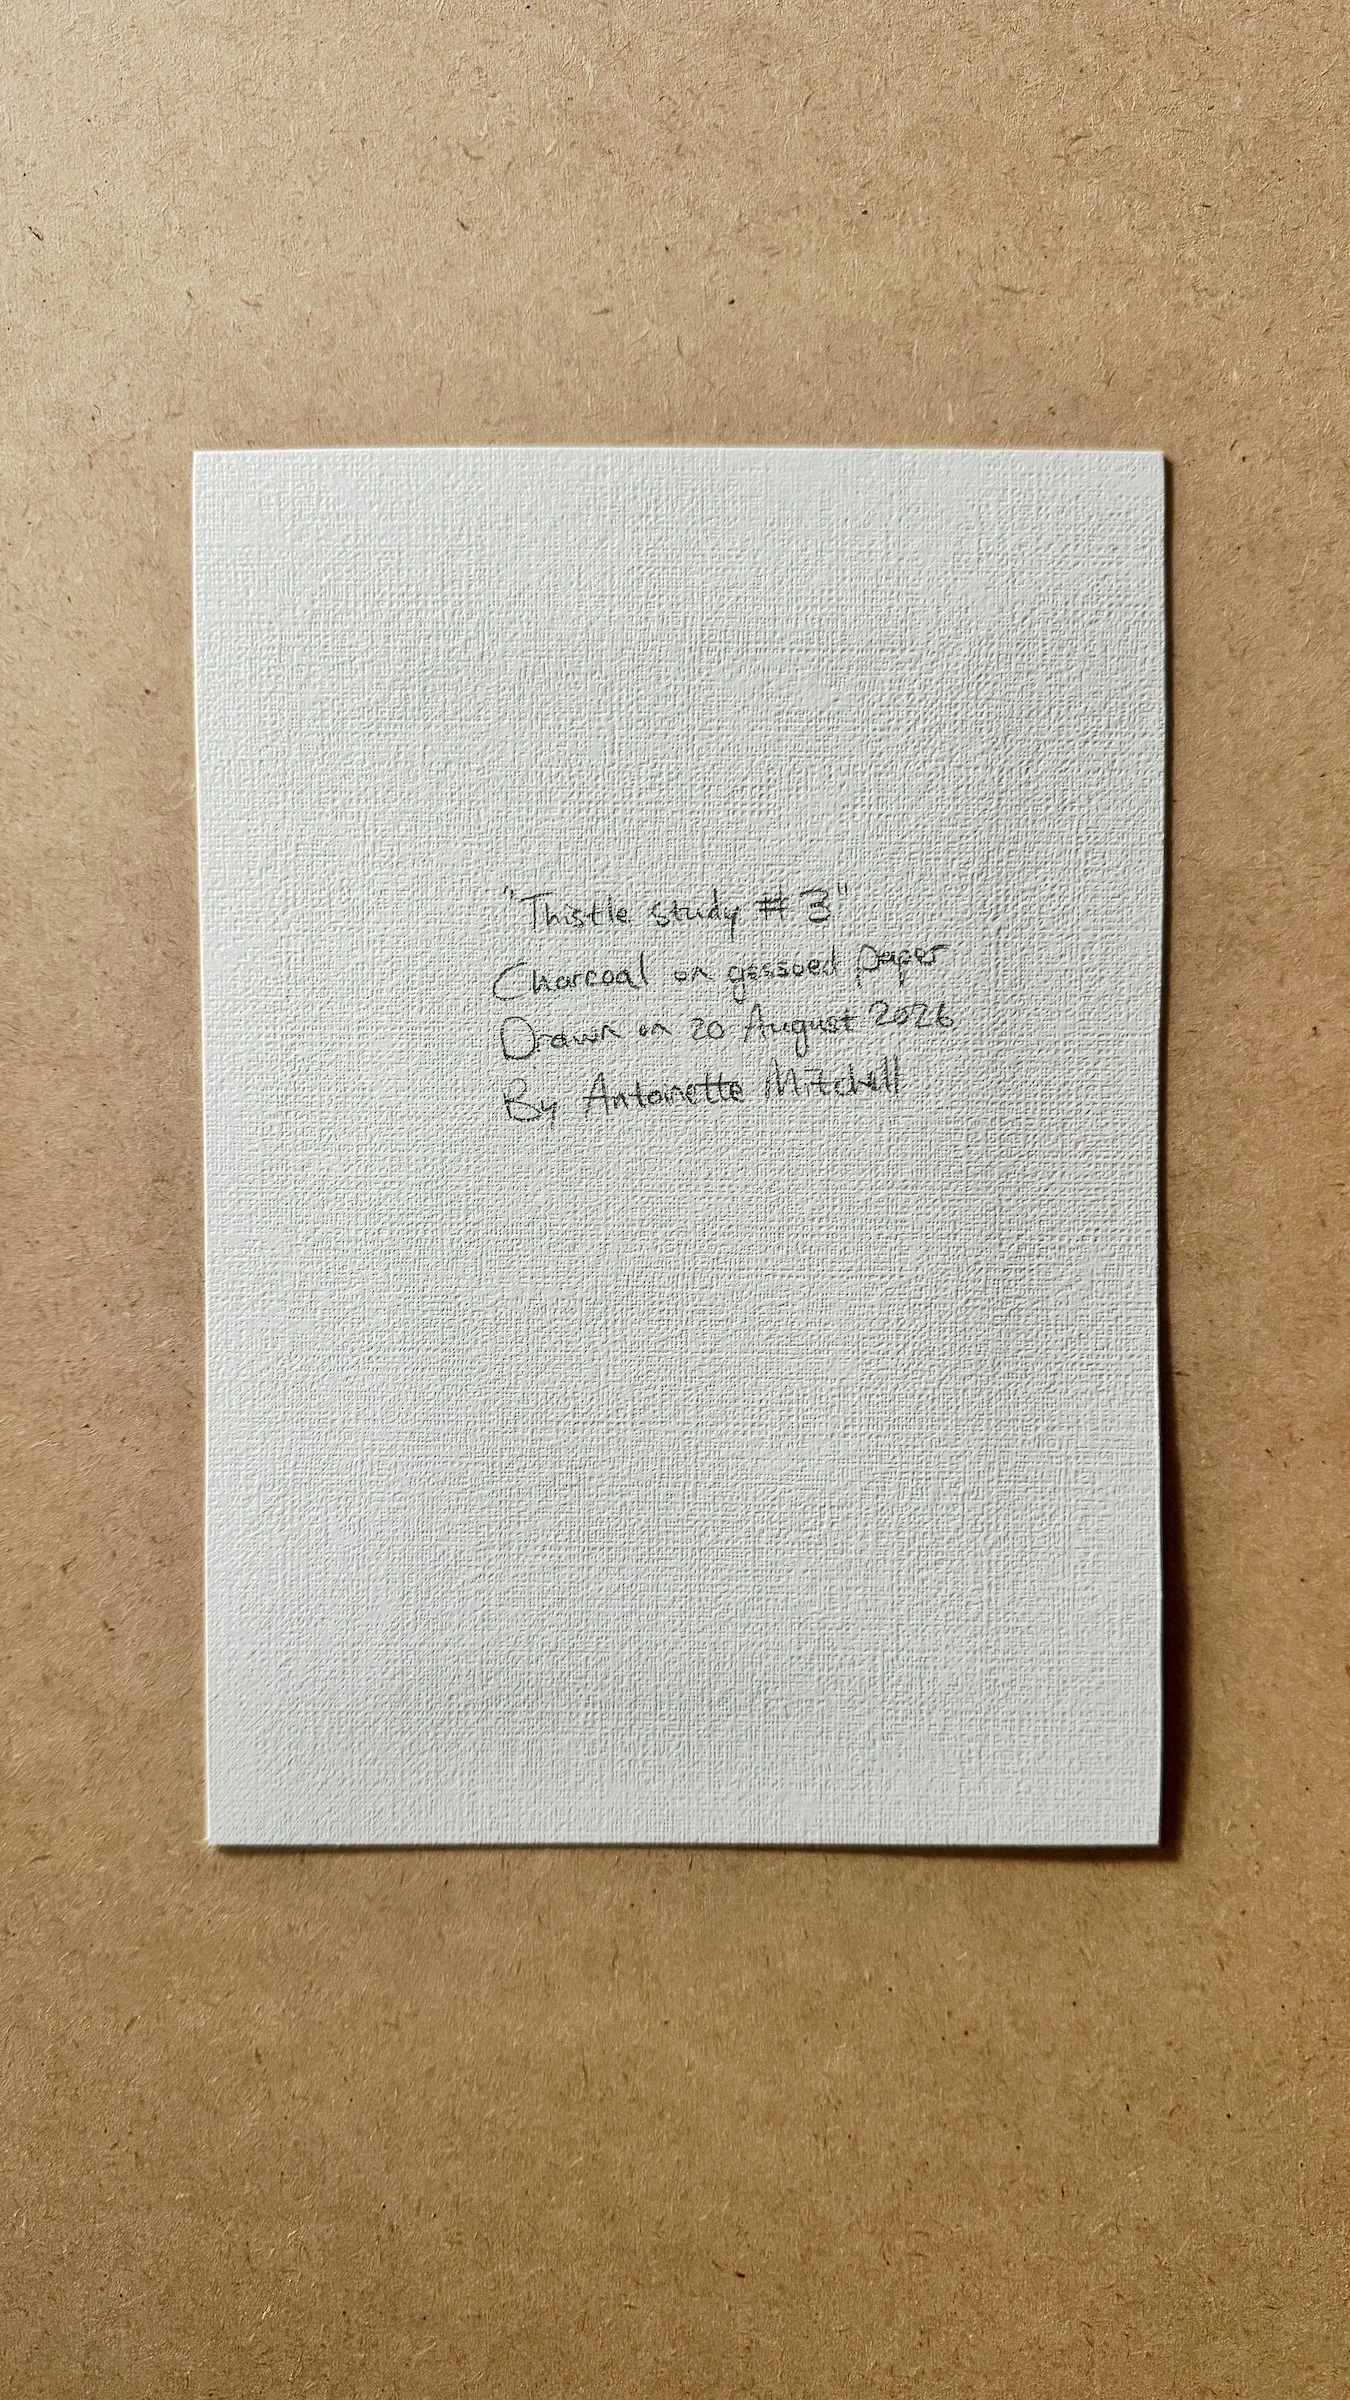 "Thistle study # 3"
Charcoal on gessoed paper
Drawn on 20 August 2026
By Antoinette Mitchell